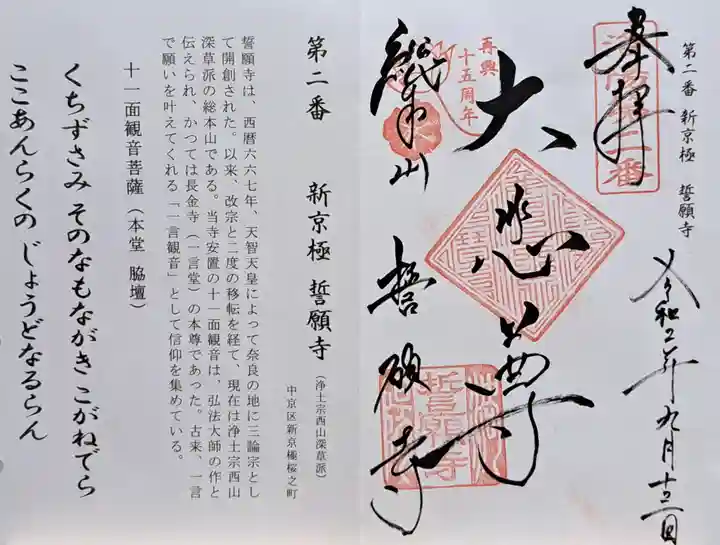 第二番 新京極 誓願寺
奉拝
令和二年九月十三日
再興
十五周年
大悲尊
総本山
誓願寺
第二番 新京極 誓願寺
(浄土宗西山深草派)
中京区新京極桜之町
誓願寺は、西暦六六七年、天智天皇によって奈良の地に三論宗とし
て開創された。以来、改宗と二度の移転を経て、現在は浄土宗西山
深草派の総本山である。当寺安置の十一面観音は、弘法大師の作と
伝えられ、かつては長金寺(一言堂)の本尊であった。古来、一言
で願いを叶えてくれる「一言観音」として信仰を集めている。
十一面観音菩薩(本堂 脇壇)
くちずさみ そのなもながき こがねでら
ここあんらくの じょうどなるらん